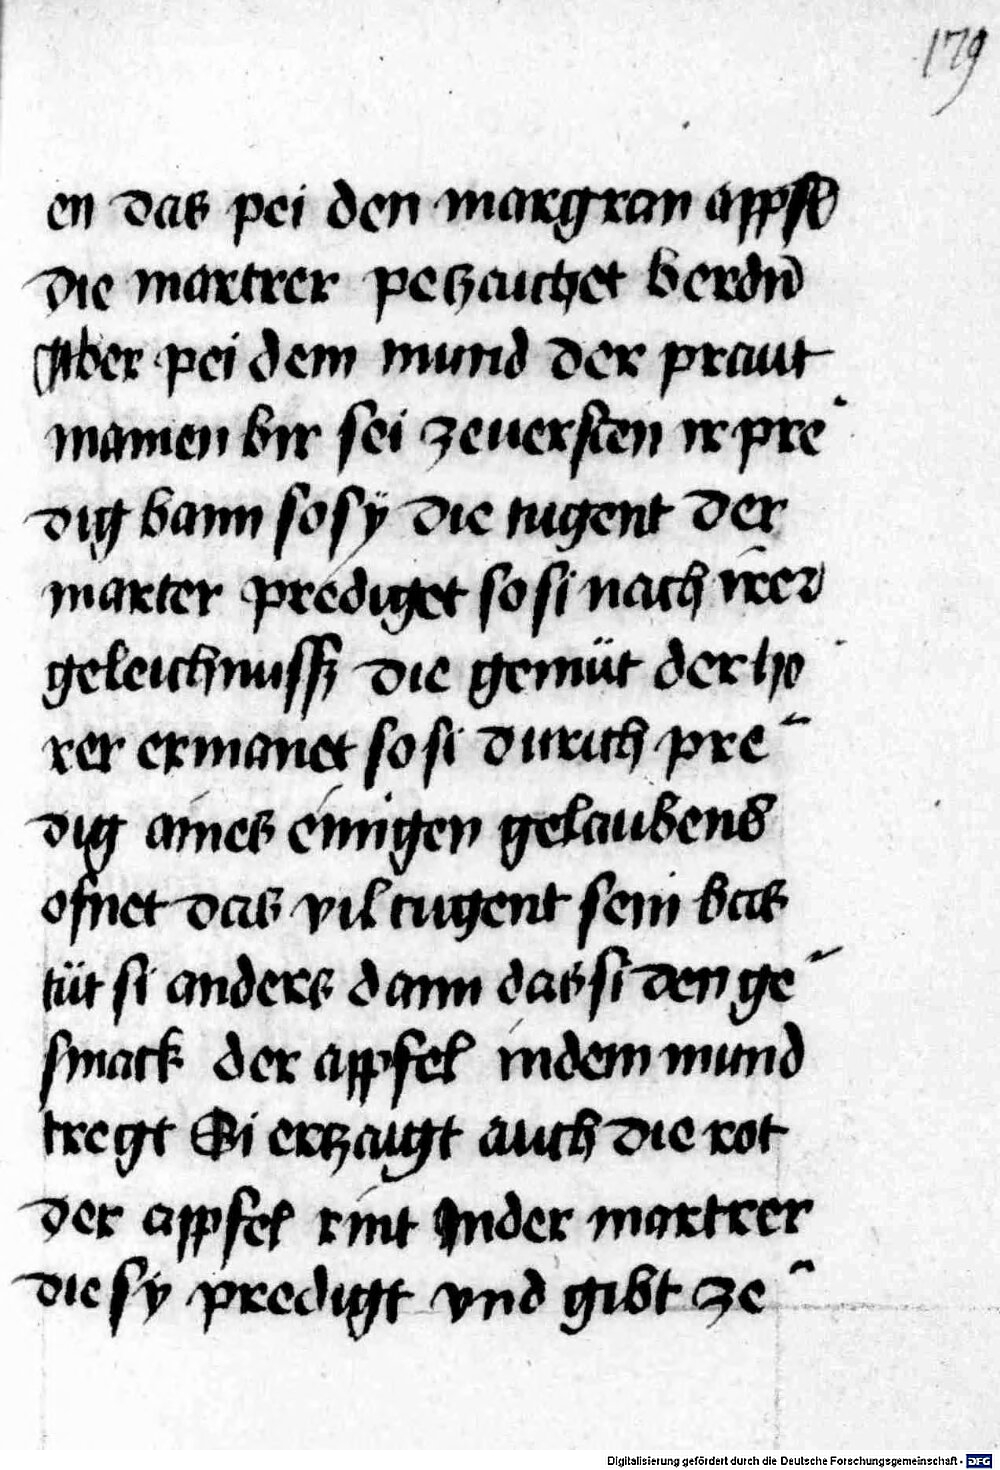 179
en das pei den margran appfel
die martrer petzaichet berdn
Aber pei dem mund der praut
mainen bir sei zeuersten ir pre
dig bann so sy die tugent der
marter prediget so si nach irer
geleichnussz die gemüt der ho
rer ermanet so si durich pre
dig aines einigen gelaubens
ofnet das vil tugent sein bas
tüt si anders dann das si den ge
smack der appfel in dem mund
tregt Si ertzaigt auch die rot
der appfel rint In der martrer
die sy predigt vnd gibt ze
Digitalisierung gefördert durch die Deutsche Forschungsgemeinschaft - DFG